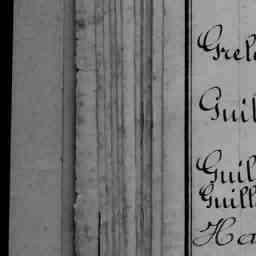 Grel
Guil
Guil
Guill